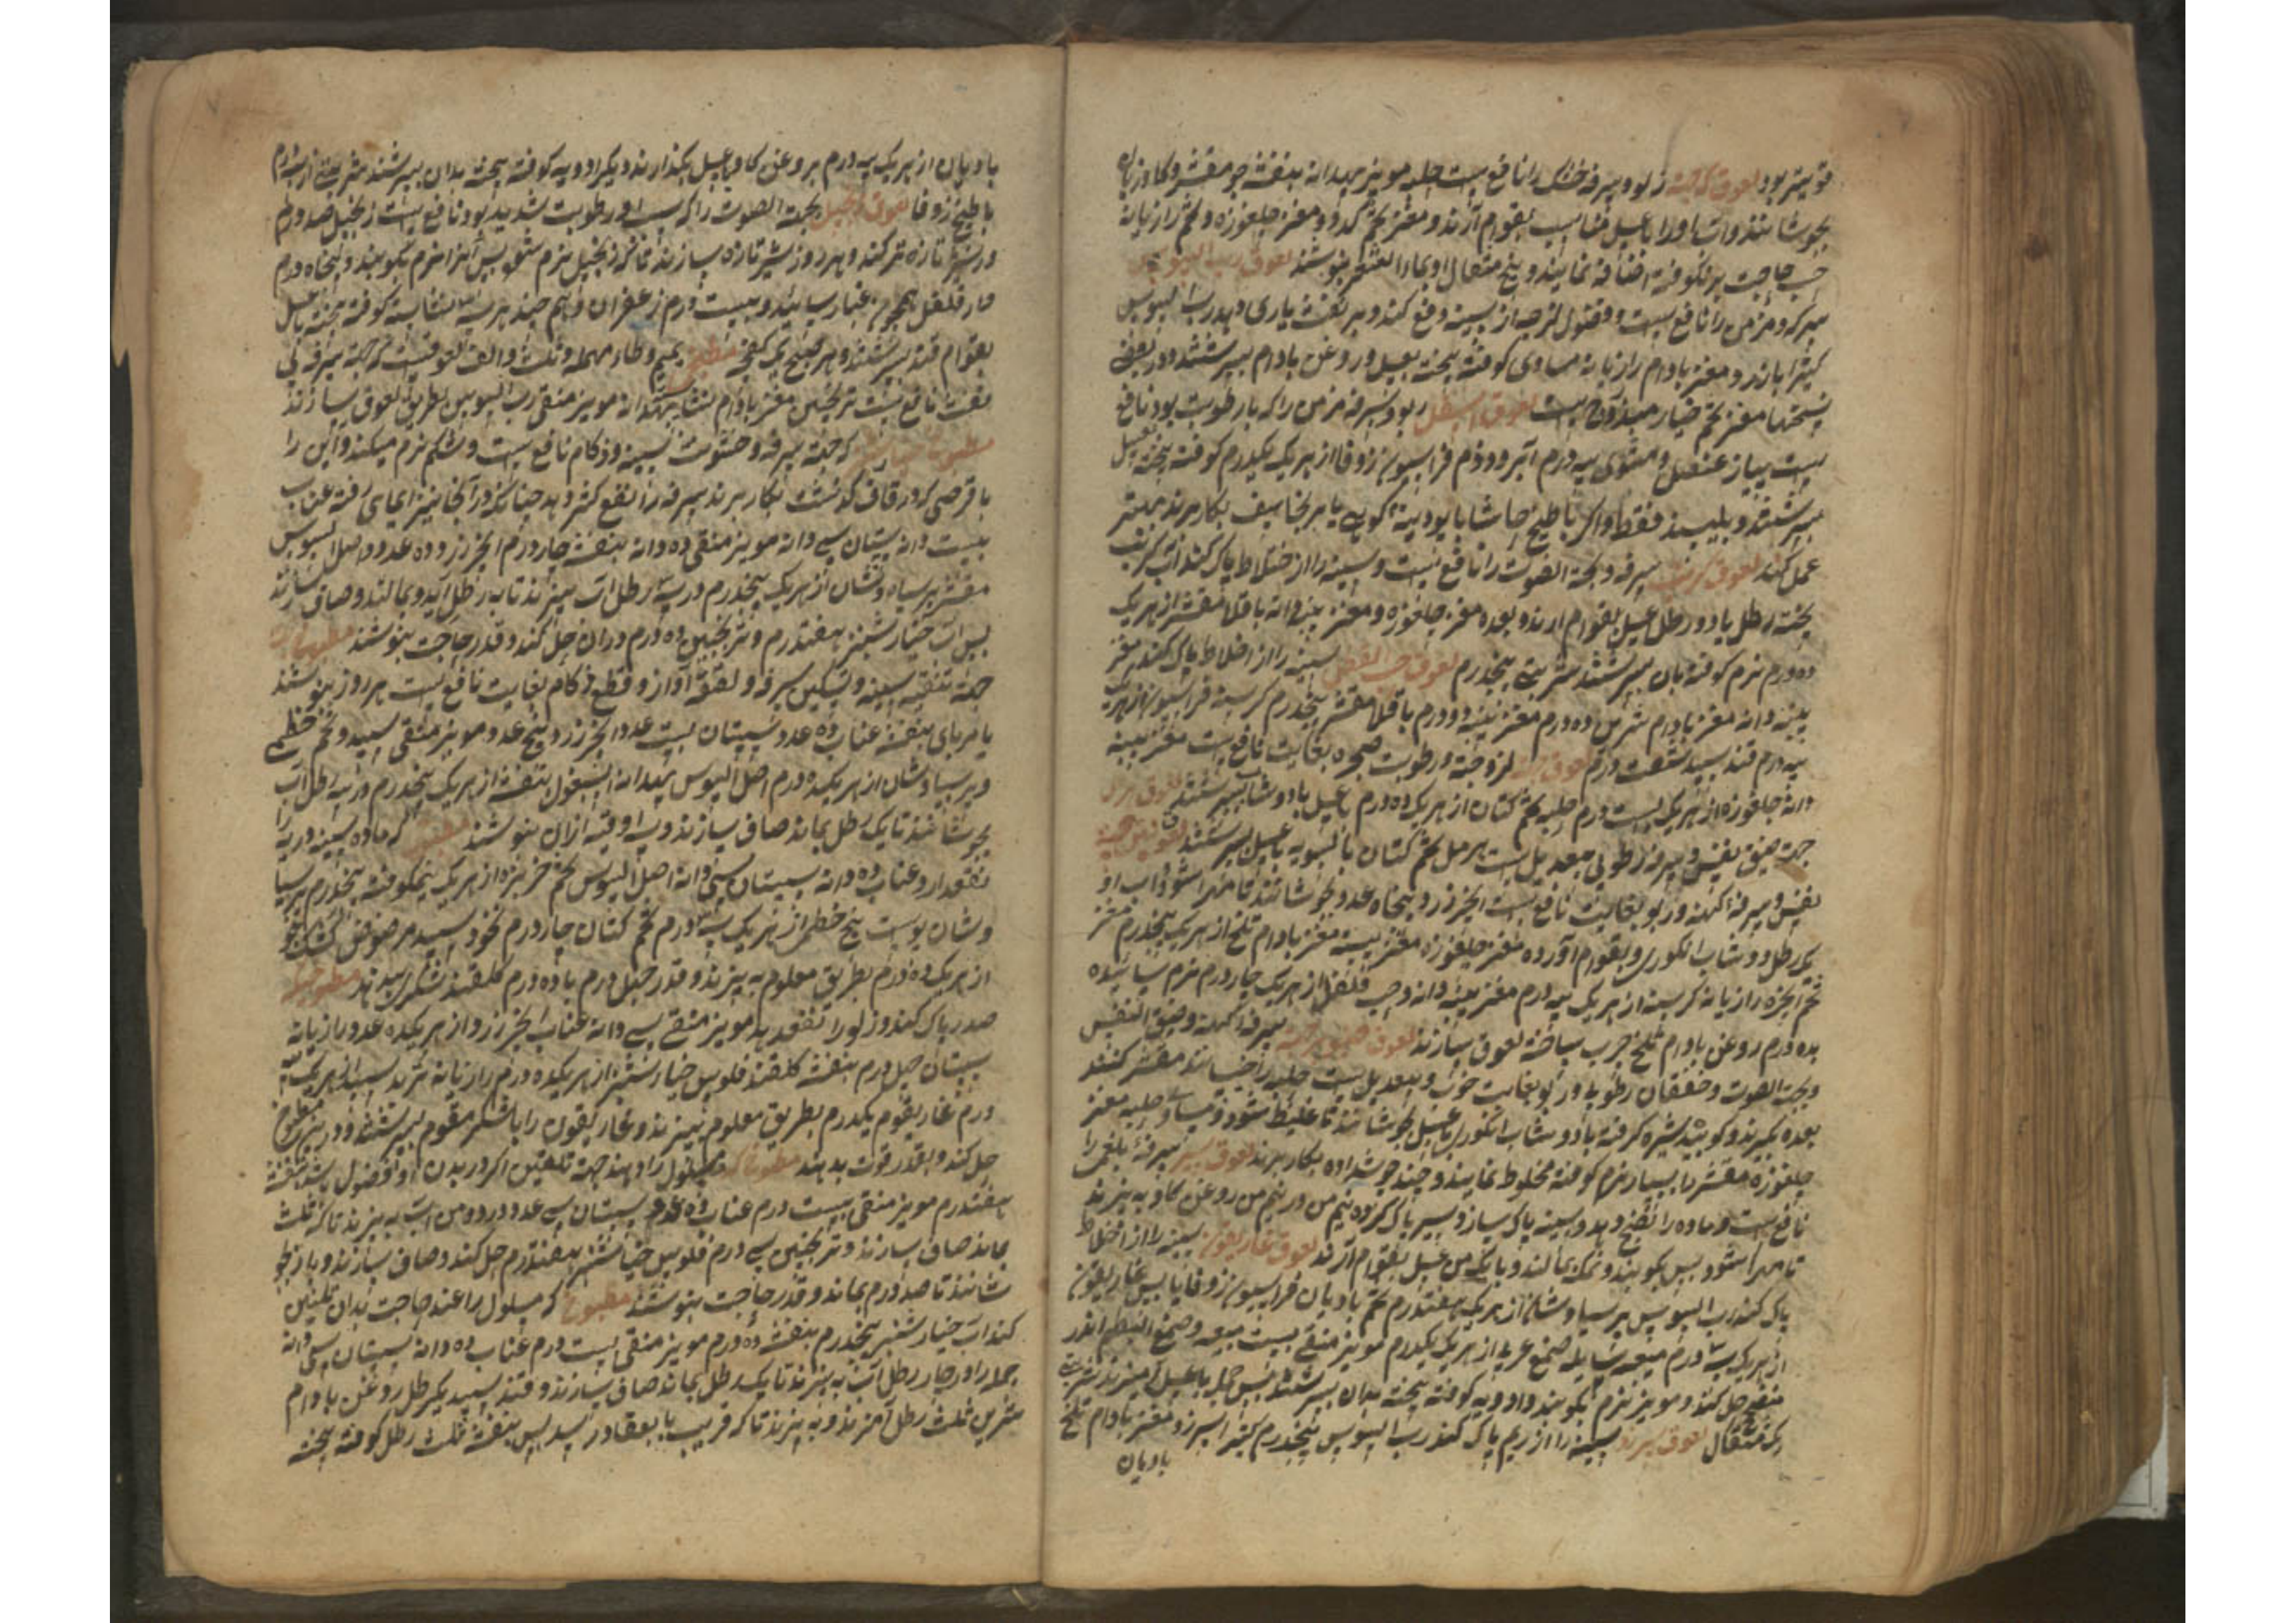 قویتر بود لعوق که جهة ربو و سرفه خشک را نافع است حلبه مویز بهدانه بنفشه جو مقشر و کاوزبان
بجوشانند و آب او را با عسل مناسب بقوام آرند و مغز تخم کدو و مغز جلغوزه و تخم رازیانه
حاجت نرم کوفته اضافه نمایند و پنج مثقال او بماء الشعیر بنوشند لعوق رب السوس
سرفه مزمن را نافع است و فضول لزجه از سینه دفع کند و بر نفث یاری دهد رب السوس
کتیرا بارزد و مغز بادام رازیانه مساوی کوفته بیخته بعسل و روغن بادام بسرشند و در بعضی
نسختها مغز تخم خیار مبدل است لعوق اسقیل ربو و سرفه مزمن را که با رطوبت بود نافع
است پیاز عنصل مشوی سه درم ایرسا دو درم فراسیون زوفا از هر یک یکدرم کوفته بیخته بعسل
بسرشند و بلیسند فقط و اگر با طبیخ حاشا یا پودینه کوهی یا برنجاسف بکار برند بهتر
عمل کند لعوق کرنب سرفه و بحة الصوت را نافع است و سینه را از اخلاط پاک کند آب کرنب
پخته رطل با دو رطل عسل بقوام آرند و بعده مغز جلغوزه و مغز پنبه دانه باقلا مقشر از هر یک
ده درم نرم کوفته بآن بسرشند شربتی پنجدرم لعوق حب القطن سینه را از اخلاط پاک کند مغز
پنبه دانه مغز بادام شیرین ده درم مغز پسته دو درم باقلا مقشر پنجدرم کرسنه فراسیون از هر یک
سه درم قند سپید شصت درم لعوق جهة لزوجت و رطوبت حنجره بغایت نافع است مغز پنبه
دانه جلغوزه از هر یک بیست درم حلبه تخم کتان از هر یک ده درم با عسل یا دوشاب بسرشند لعوق حرمل
جهة ضیق نفس و سرفه رطوبی بیعدیل است حرمل تخم کتان بالسویه با عسل بسرشند لعوق تین جهة
نفس و سرفه کهنه و ربو بغایت نافع است انجیر زرد پنجاه عدد بجوشانند تا مهرا شود و آب او
یک رطل دوشاب انکوری بقوام آورده مغز جلغوزه مغز پسته مغز بادام تلخ از هر یک پنجدرم مغز
تخم انجره رازیانه کرسنه از هر یک سه درم مغز پنبه دانه و حب فلفل از هر یک چار درم نرم سائیده
بده درم روغن بادام تلخ چرب ساخته لعوق سازند لعوق جهة سرفه کهنه و ضیق النفس
و بحة الصوت و خفقان رطوبی و ربو بغایت خوب و بیعدیل است حلبه را خیسانند مقشر کنند
بعده بگیرند و کوبند شیره گرفته با دوشاب انکوری یا عسل بجوشانند تا غلیظ شود و حلبه مغز
جلغوزه مقشر را بسیار نرم کوفته مخلوط نمایند و چند جوش داده بکار برند لعوق سیر سرفه بلغمی را
نافع است و ماده را نضج دهد و سینه پاک سازد سیر پاک کرده نیم من در نیم من روغن کاو به پزند
تا مهرا شود پس بکوبند و نیک بمالند و با یک من عسل بقوام آرند لعوق غاریقون سینه را از اخلاط
پاک کند رب السوس پرسیاوشان از هر یک هفتدرم تخم بادیان فراسیون زوفا یابس غاریقون
از هر یک سه درم میعه سایله صمغ عربی از هر یک یکدرم مویز منقی بیست میعه و صمغ البطم اندر
حل کنند و مویز نرم بکوبند و ادویه کوفته بیخته بدان بسرشند پس جمله با عسل آمیزند شربت
یک مثقال لعوق سینه را از ریم پاک کند رب السوس پنجدرم کتیرا بیرزد مغز بادام تلخ
بادیان
بادیان از هر یک سه درم بروغن کاو با عسل بکدازند و دیگر ادویه کوفته بیخته بدان بسرشند شربتی از سه درم
با طبیخ زوفا لعوق زنجبیل بحة الصوت را که سبب او رطوبت شدید بود نافع است زنجبیل صد درم
در شیر تازه تر کنند و هر روز شیر تازه سازند تا که زنجبیل نرم شود پس آنرا نرم بکوبند و پنجاه درم
دارفلفل همچون غبار سایند و بیست درم زعفران و هم چند هر سه نشاسته کوفته بیخته با عسل
بقوام قند بسرشند و هر صبح یک کفچه مطبوخ بمیم و طاء مهمله و ثلث و الف لعوقیست که جهة سرفه بی
نفث نافع است ترنجبین مغز بادام نشاسته بهدانه مویز منقی رب السوس بطریق لعوق سازند
مطبوخ خیارشنبر که جهة سرفه و خشونت سینه و زکام نافع است و شکم نرم میکند و این را
با قرصی که در قاف گذشت بکار برند سرفه را نفع کثیر دهد چنانکه در آنجا نیز ایمای رفته عناب
بیست دانه سپستان سی دانه مویز منقی ده دانه بنفشه چار درم انجیر زرد ده عدد اصل السوس
مقشر پرسیاوشان از هر یک پنجدرم در سه رطل آب پزند تا به رطل آید و بمالند و صاف سازند
پس آب خیارشنبر هفتدرم و ترنجبین ده درم دران حل کنند و قدر حاجت بنوشند مطبوخ
جهة تنقیه سینه و تسکین سرفه و تصفیه آواز و قطع زکام بغایت نافع است هر روز بنوشند
یا مربای بنفشه عناب ده عدد سپستان بیست عدد انجیر زرد پنج عدد مویز منقی سپید و تخم خطمی
و پرسیاوشان از هر یک ده درم اصل السوس بهدانه اسبغول بنفشه از هر یک پنجدرم در سه رطل آب
بجوشانند تا یک رطل بماند صاف سازند و سه اوقیه ازان بنوشند مطبوخ که ماده سینه و ریه را
نفع دارد عناب ده دانه سپستان سی دانه اصل السوس تخم خربزه از هر یک نیمکوفته پنجدرم پرسیا
وشان پوست بیخ خطمی از هر یک سه درم تخم کتان چار درم نخود سپید مرضوض کشک جو
از هر یک ده درم بطریق معلوم به پزند و قدر چهل درم با ده درم گلقند شکری بدهند مطبوخ جهة
صدر پاک کند و ربو را نفع دهد مویز منقی سی دانه عناب انجیر زرد از هر یک ده عدد رازیانه
سپستان چهل درم بنفشه گلقند فلوس خیارشنبر از هر یک ده درم رازیانه تربد سپید از هر یک سه
درم غاریقون یکدرم بطریق معلوم بپزند و غاریقون را با شکر مقوم بسرشند و در مطبوخ
حل کنند و بقدر قوت بدهند مطبوخ که مسلول را دهند جهة تلیین اگر در بدن او فضول باشد بنفشه
هفتدرم مویز منقی بیست درم عناب ده عدد سپستان سی عدد در دو من آب به پزند تا که ثلث
بماند صاف سازند و ترنجبین سی درم فلوس خیارشنبر هفتدرم حل کنند و صاف سازند و باز بجو
شانند تا صد درم بماند و قدر حاجت بنوشند مطبوخ که مسلول را عند حاجت بدان تلیین
کنند آب خیارشنبر پنجدرم بنفشه ده درم مویز منقی بیست درم عناب ده دانه سپستان سی دانه
جمله را در چار رطل آب به پزند تا یک رطل بماند صاف سازند و قند سپید یکرطل روغن بادام
شیرین ثلث رطل آمیزند و به پزند تا که قریب بانعقاد رسد پس بنفشه ثلث رطل کوفته بیخته